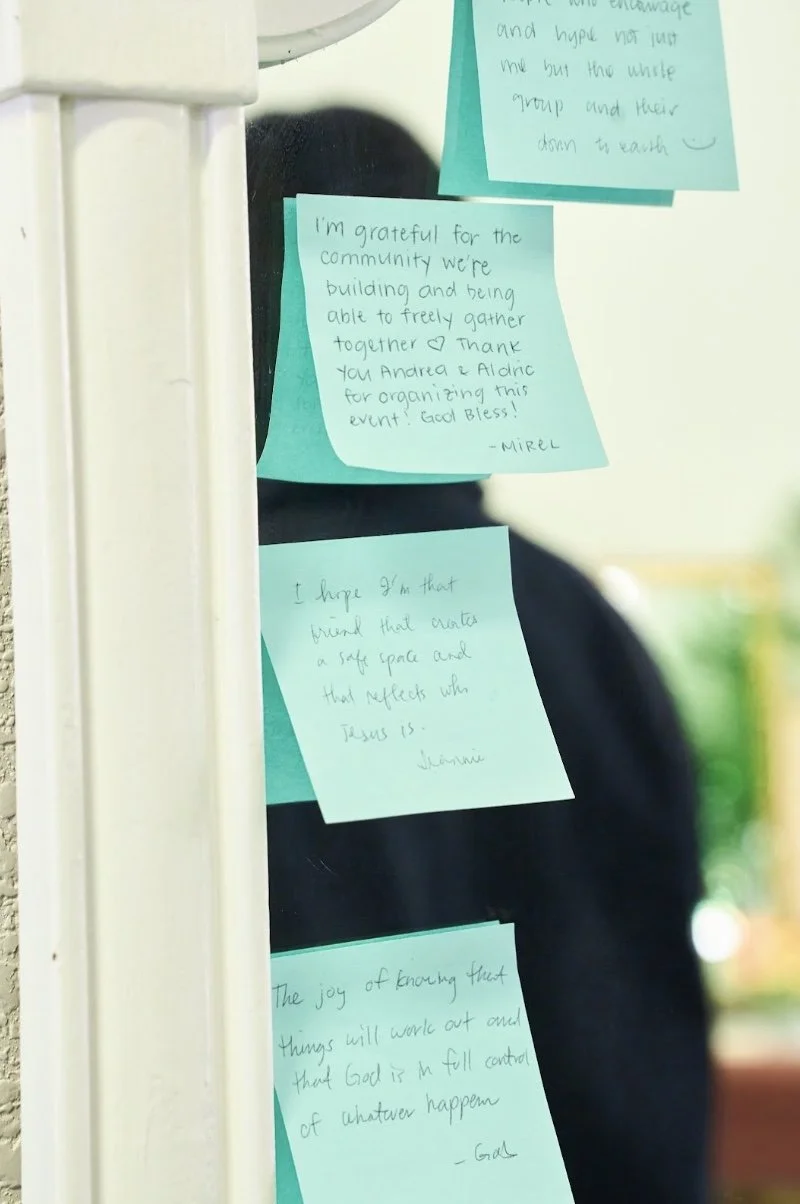 people who encourage
and hype not just
me but the whole
group and their
down to earth
I'm grateful for the
community we're
building and being
able to freely gather
together ♡ Thank
You Andrea & Aldric
for organizing this
event! God Bless!
-MIREL
I hope I'm that
friend that creates
a safe space and
that reflects who
Jesus is.
Jeannie
The joy of knowing that
things will work out and
that God is in full control
of whatever happen
- Gab